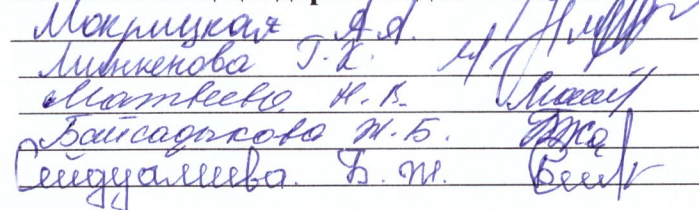 Мокрицкая А.А.
Линкенова Г.К.
Матвеева Н.В.
Байсадыкова Ж.Б.
Сейдуалиева. Б.Ж.